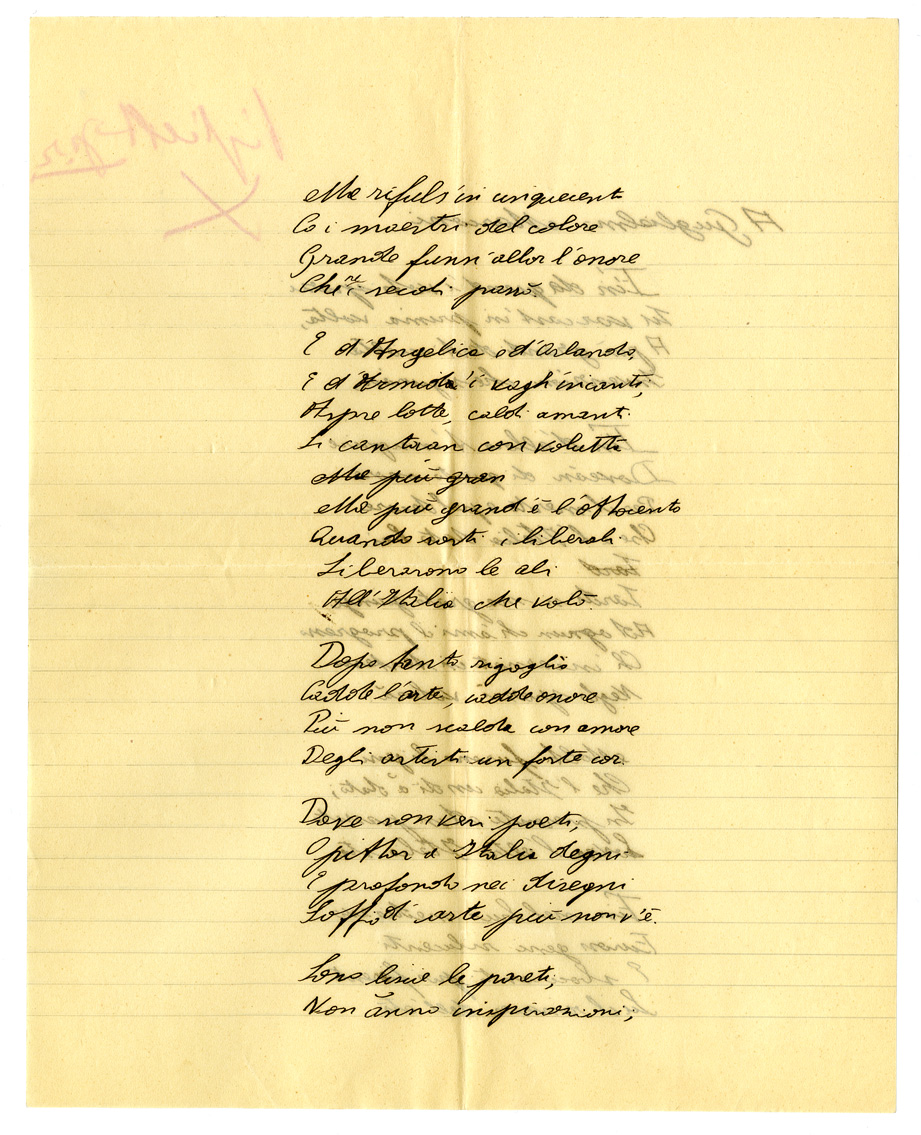 Ma rifuls'in cinquecent
Co i maestri del colore
Grande funn'allor l'onore
Che ne i secoli passò.
E d'Angelica e d'Orlando,
E d'Armida i vagh'incanti,
Aspre lotte, caldi amanti
Si cantaron con voluttà
Ma più gran
Ma più grand'è l'ottocento
Quando sorti i liberali
Liberarono le ali
All'Italia che volò.
Dopo tanto rigoglio
Cadde l'arte, cadde onore
Più non scalda con amore
Degli artisti un forte cor.
Dove son veri poeti,
O pittor d'Italia degni
E profondo nei disegni
Soffio d'arte più non v'è.
Sono lisce le pareti,
Non ànno inspirazioni;